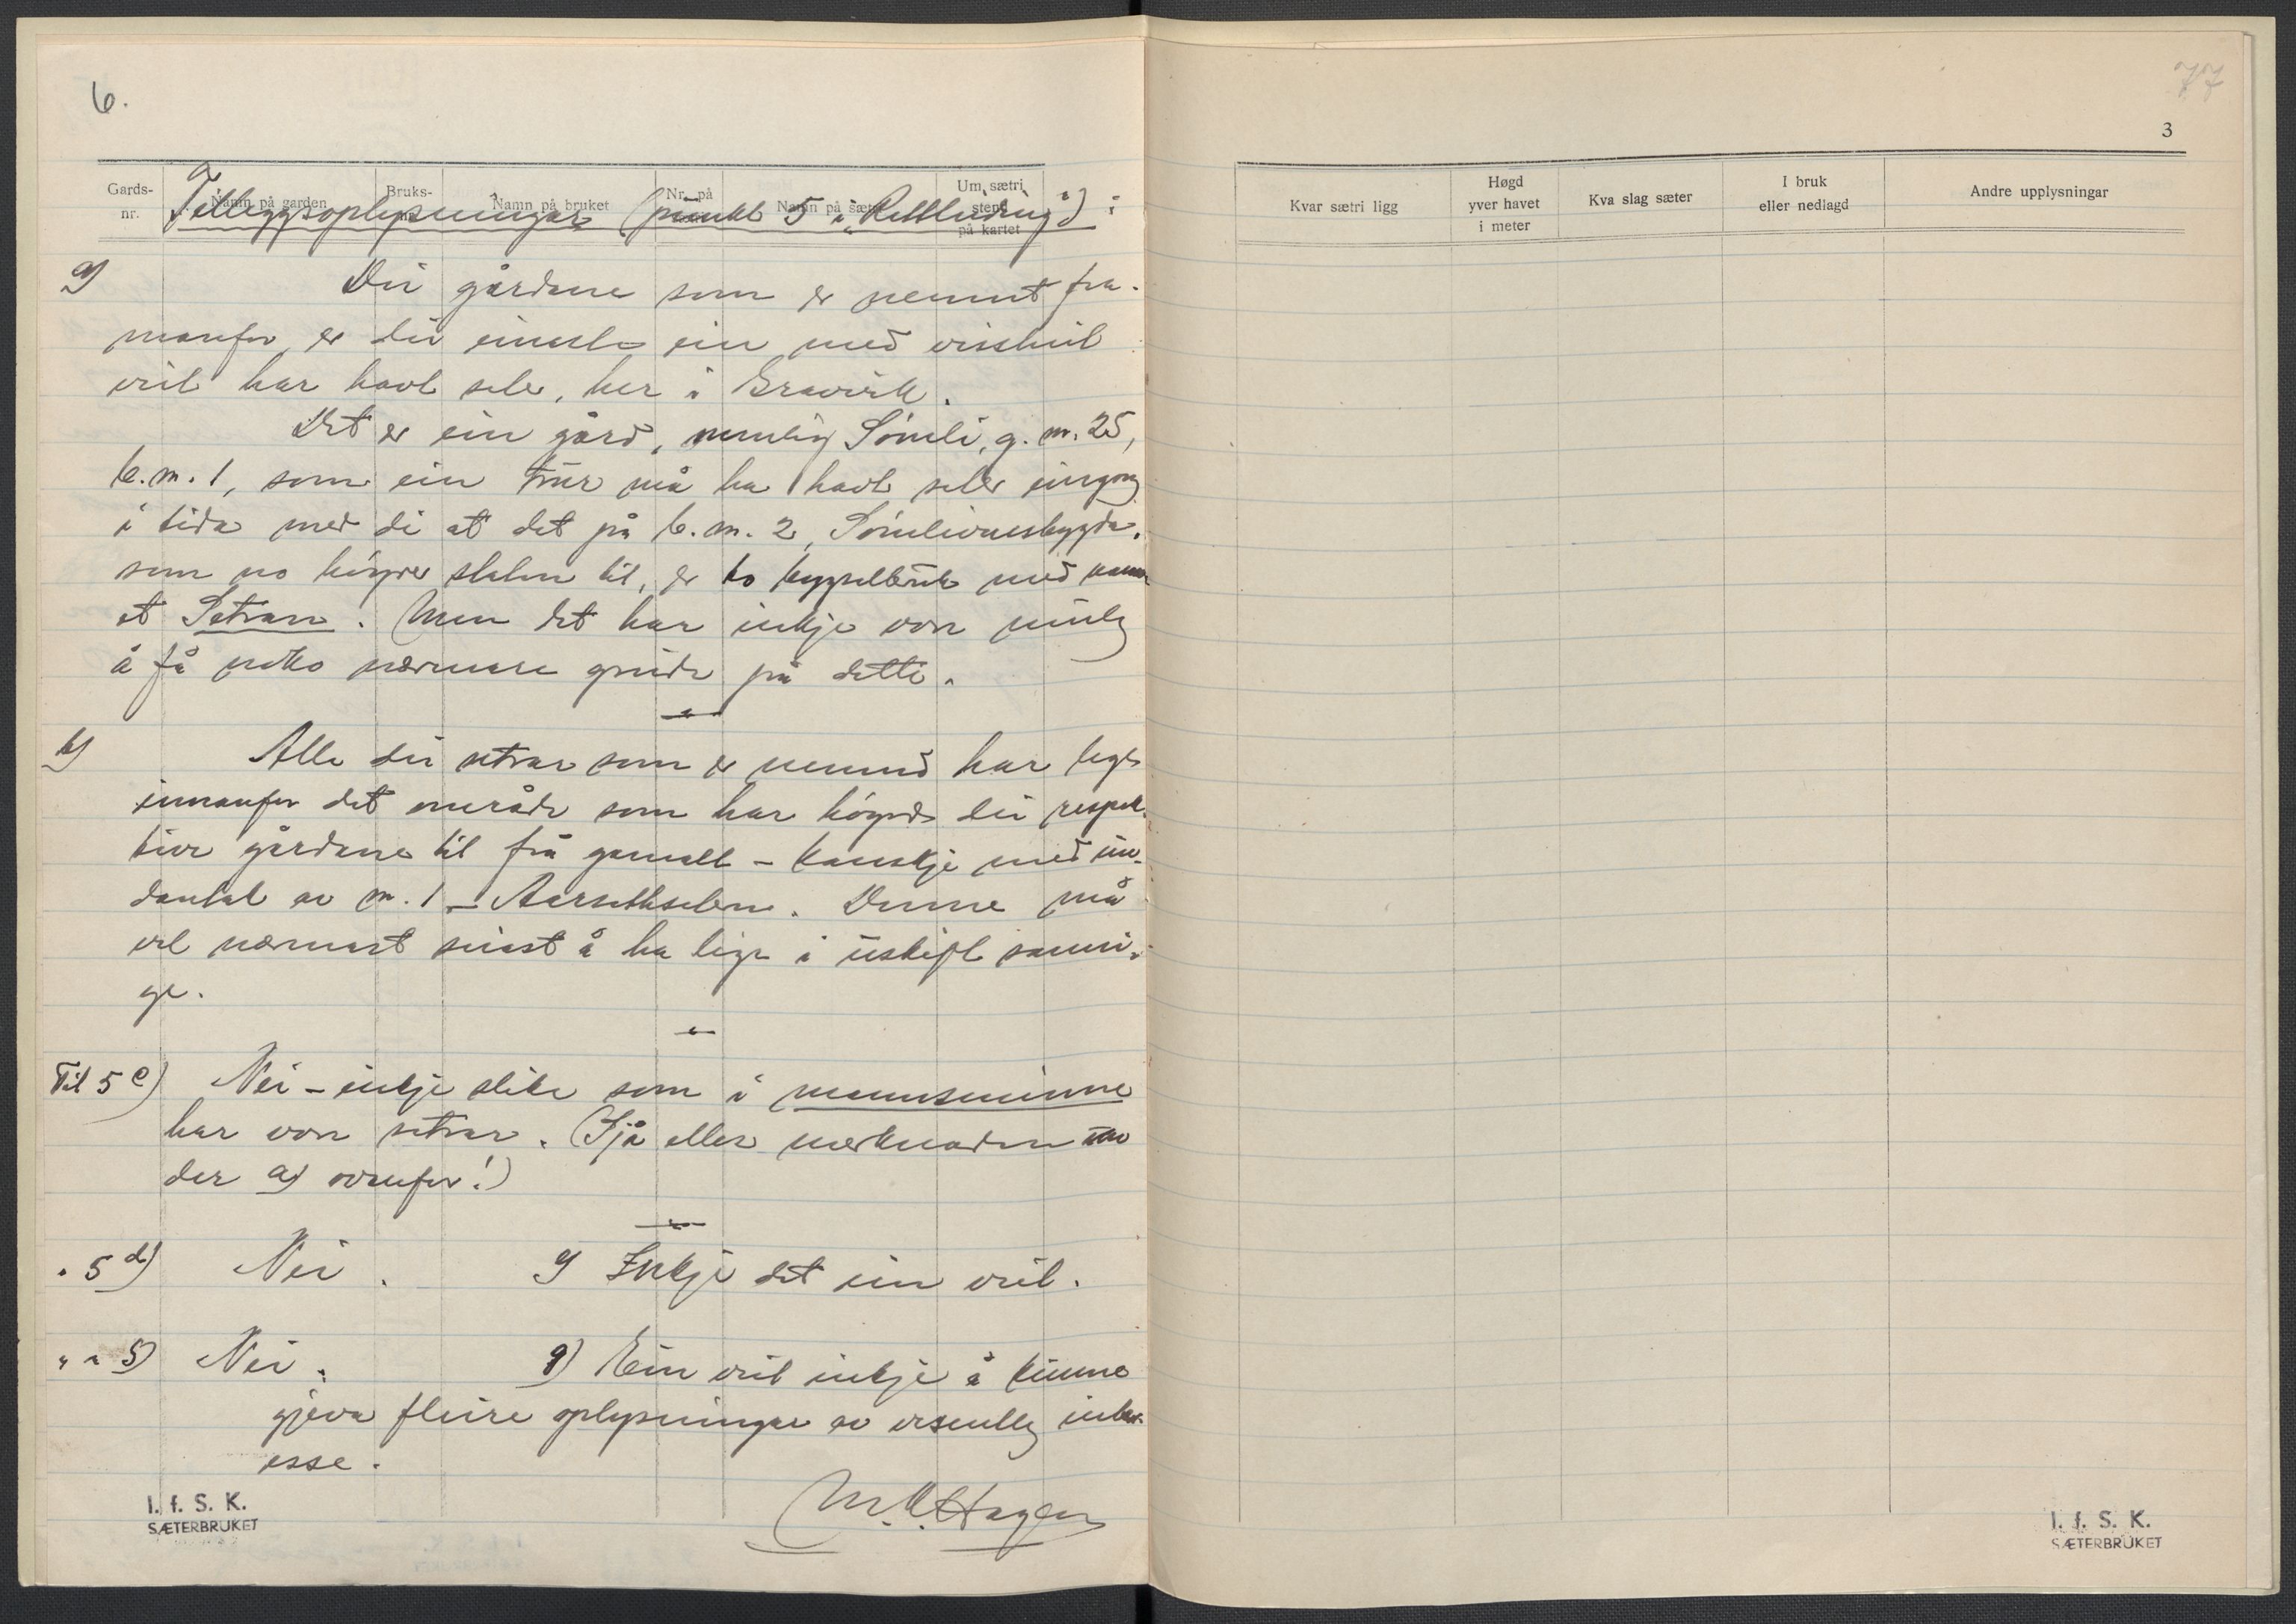 6.
77
3
Gards-
nr.
Namn på garden
Bruks-
nr.
Namn på bruket
Nr. på
Namn på sætri
Um sætri
stend
på kartet
Tilleggsoplysningar (punkt 5 i „Rettleiding"):
a) Dei gårdane som er nemnt fra-
manfor er dei einaste ein med visshet
veit har havt seter, her i Gravvik.
Det er ein gård, nemlig Sömli, g. nr. 25,
b. nr. 1, som ein trur må ha havt seter eingong
i tida med di at det på b. nr. 2, Sömliomesbygda,
som no höyrer staten til, er to bygselbruk med namn
et Setran. Men det har inkje vore muleg
å få noko nærmare greide på dette.
b) Alle dei setrar som er nemnd har lege
innanfor det område som har höyrd dei respek-
tive gårdane til frå gamalt – kanskje med un-
dantak av nr. 1 – Aarsethseteren. Denne må
vel nærmast seiast å ha lege i uskift sameige-
ge.
Til 5 c) Nei – inkje slike som i mannsminne
har vore setrar. (Sjå elles merknaden un
der a) ovanfor!)
" 5 d) Nei. e) Inkje det ein veit.
" " f) Nei. g) Ein veit inkje å kunne
gjeva fleire oplysningar av vesentleg inter-
esse.
M. O. Hagen
I. f. S. K.
SÆTERBRUKET
Kvar sætri ligg
Høgd
yver havet
i meter
Kva slag sæter
I bruk
eller nedlagd
Andre upplysningar
I. f. S. K.
SÆTERBRUKET